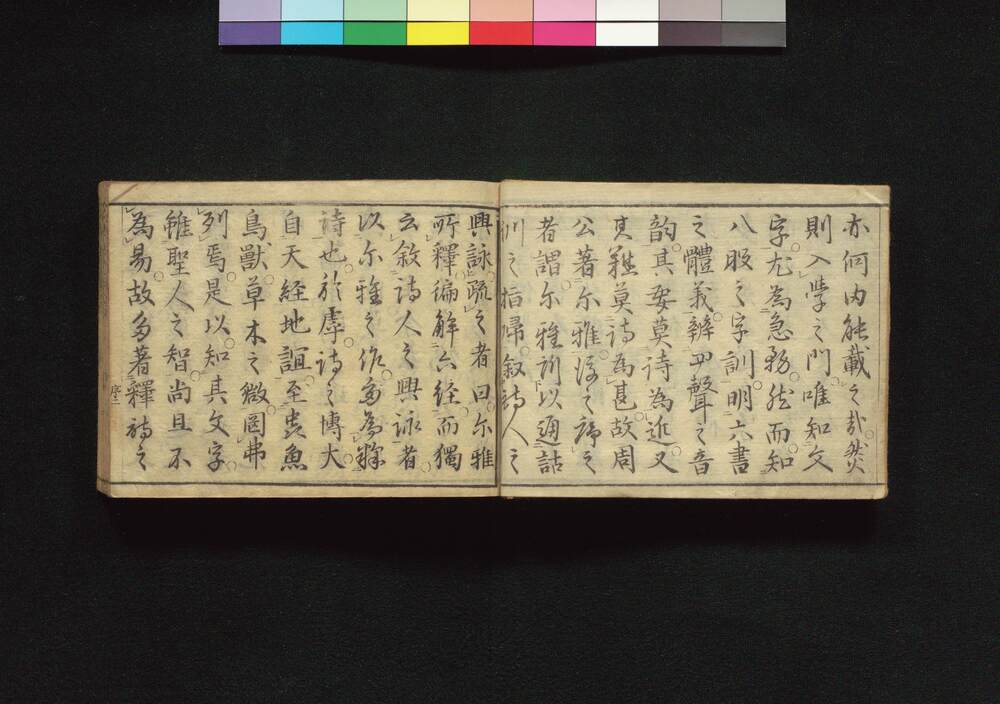 亦何内能載之哉然
則入學之門唯知文
字尤為急務然而知
八股之字訓明六書
之體義辨四聲之音
韵其要莫詩為近又
其難莫詩為甚故周
公著尔雅後之序之
者謂尔雅訓以通詁
訓之指歸叙詩人之
興詠疏之者曰尔雅
所釋徧解六經而獨
云敘詩人之興詠者
以尔雅之作多為釋
詩也於虖詩之博大
自天経地誼至虫魚
鳥獸草木之微罔弗
列焉是以知其文字
雖聖人之智尚且不
為易故多著釋詩之
序二